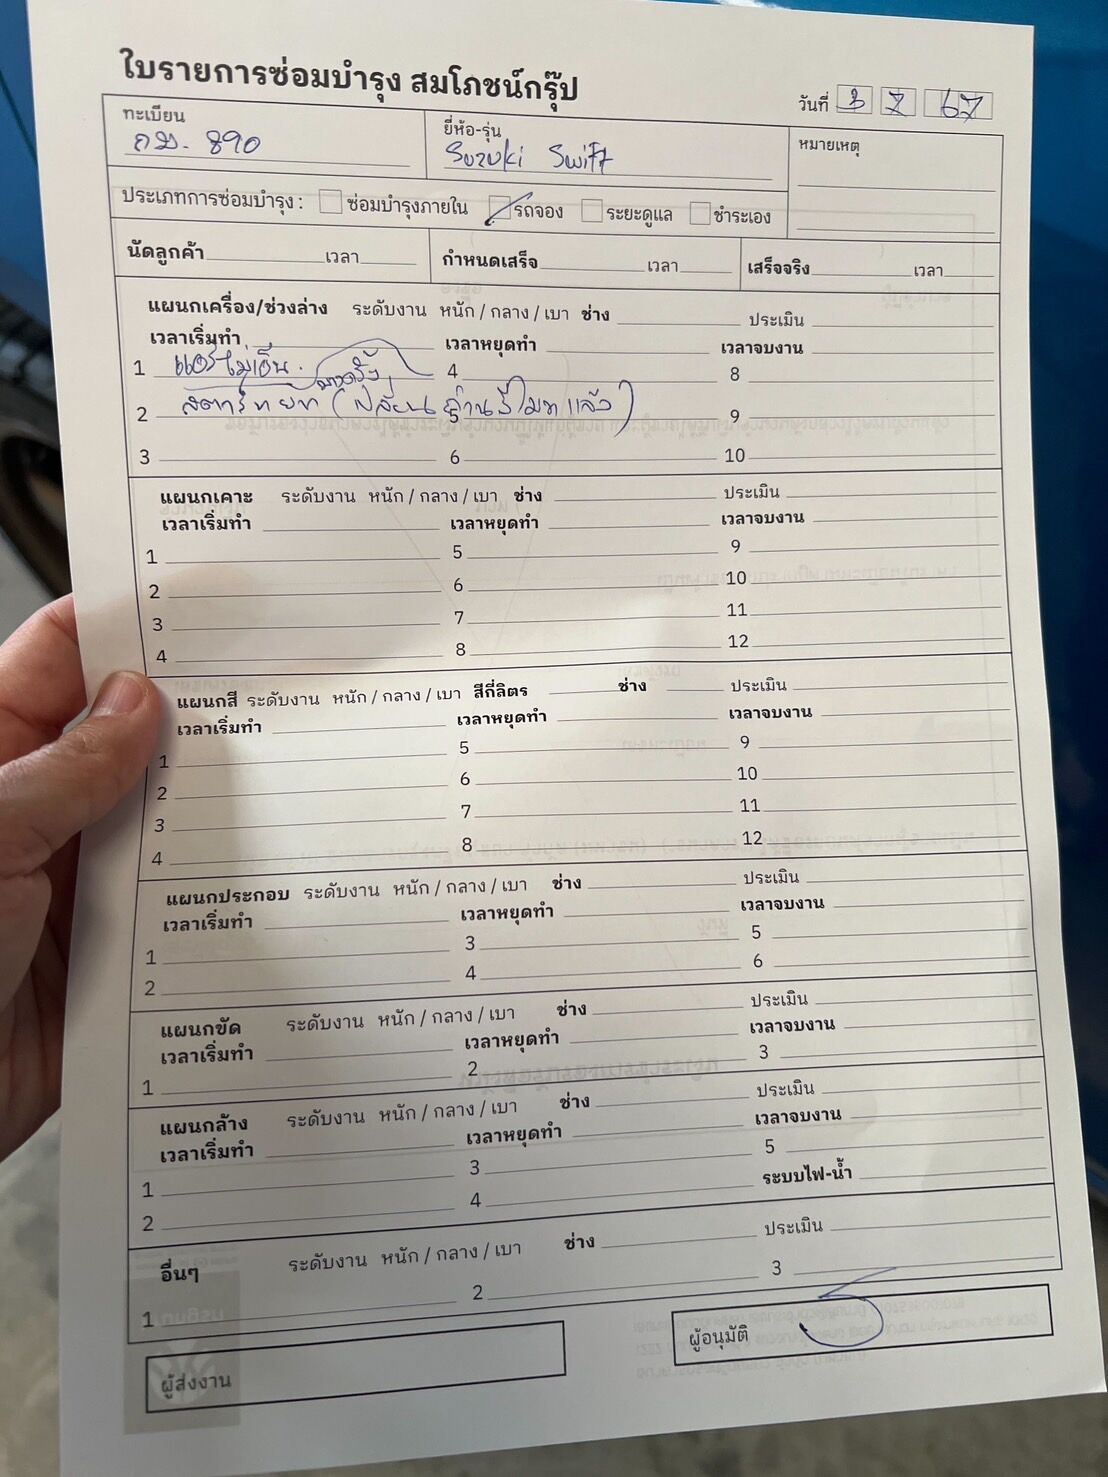 ใบรายการซ่อมบำรุง สมโภชน์กรุ๊ป
วันที่ 3 7 67
ทะเบียน
กม. 890
ยี่ห้อ-รุ่น
Suzuki Swift
หมายเหตุ
ประเภทการซ่อมบำรุง : ซ่อมบำรุงภายใน รถจอง ระยะดูแล ชำระเอง
นัดลูกค้า เวลา กำหนดเสร็จ เวลา เสร็จจริง เวลา
แผนกเครื่อง/ช่วงล่าง ระดับงาน หนัก / กลาง / เบา ช่าง ประเมิน
เวลาเริ่มทำ เวลาหยุดทำ เวลาจบงาน
1 แอร์ไม่เย็น. บางครั้ง 4 8
2 สตาร์ทยาก (เปลี่ยนถ่านรีโมทแล้ว) 5 9
3 6 10
แผนกเคาะ ระดับงาน หนัก / กลาง / เบา ช่าง ประเมิน
เวลาเริ่มทำ เวลาหยุดทำ เวลาจบงาน
1 5 9
2 6 10
3 7 11
4 8 12
แผนกสี ระดับงาน หนัก / กลาง / เบา สีกี่ลิตร ช่าง ประเมิน
เวลาเริ่มทำ เวลาหยุดทำ เวลาจบงาน
1 5 9
2 6 10
3 7 11
4 8 12
แผนกประกอบ ระดับงาน หนัก / กลาง / เบา ช่าง ประเมิน
เวลาเริ่มทำ เวลาหยุดทำ เวลาจบงาน
1 3 5
2 4 6
แผนกขัด ระดับงาน หนัก / กลาง / เบา ช่าง ประเมิน
เวลาเริ่มทำ เวลาหยุดทำ เวลาจบงาน
1 2 3
แผนกล้าง ระดับงาน หนัก / กลาง / เบา ช่าง ประเมิน
เวลาเริ่มทำ เวลาหยุดทำ เวลาจบงาน
1 3 5
2 4 ระบบไฟ-น้ำ
อื่นๆ ระดับงาน หนัก / กลาง / เบา ช่าง ประเมิน
1 2 3
ผู้ส่งงาน
ผู้อนุมัติ